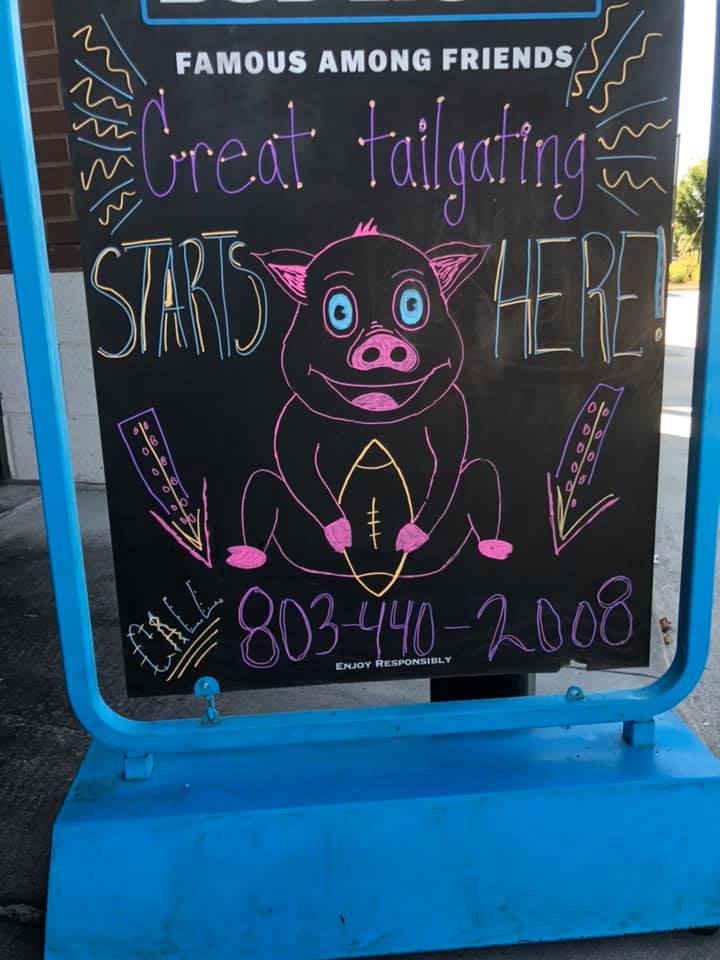 FAMOUS AMONG FRIENDS
Great tailgating
STARTS HERE!
803-440-2008
ENJOY RESPONSIBLY